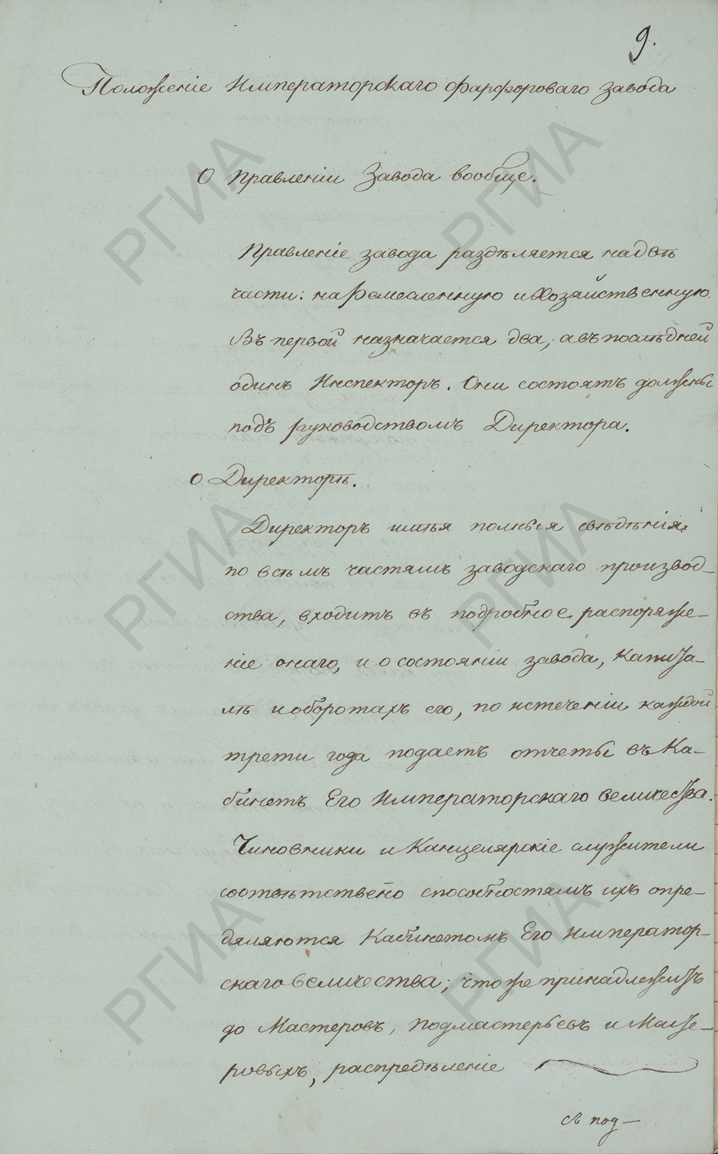 9.
Положеніе Императорскаго Фарфороваго Завода
О Правленіи Завода вообще.
Правленіе завода раздѣляется на двѣ
части: на Ремесленную и Хозяйственную
Въ первой назначается два, а въ послѣдней
одинъ Инспекторъ. Они состоятъ должны
подъ руководствомъ Директора.
О Директорѣ.
Директоръ имѣя полныя свѣдѣнія,
по всѣмъ частямъ заводскаго производ-
ства, входитъ въ подробное распоряже-
ніе онаго, и о состояніи завода, Капита-
лѣ и оборотахъ его, по истеченіи каждой
трети года подаетъ отчеты въ Ка-
бинетъ Его Императорскаго величества.
Чиновники и Канцелярскіе служители
соотвѣтствено способностямъ ихъ опре-
дѣляются Кабинетомъ Его Император-
скаго величества; что же принадлежитъ
до Мастеровъ, Подмастерьевъ и Масте-
ровыхъ, распредѣленіе
съ под-
РГИА
РГИА
РГИА
РГИА
РГИА
РГИА